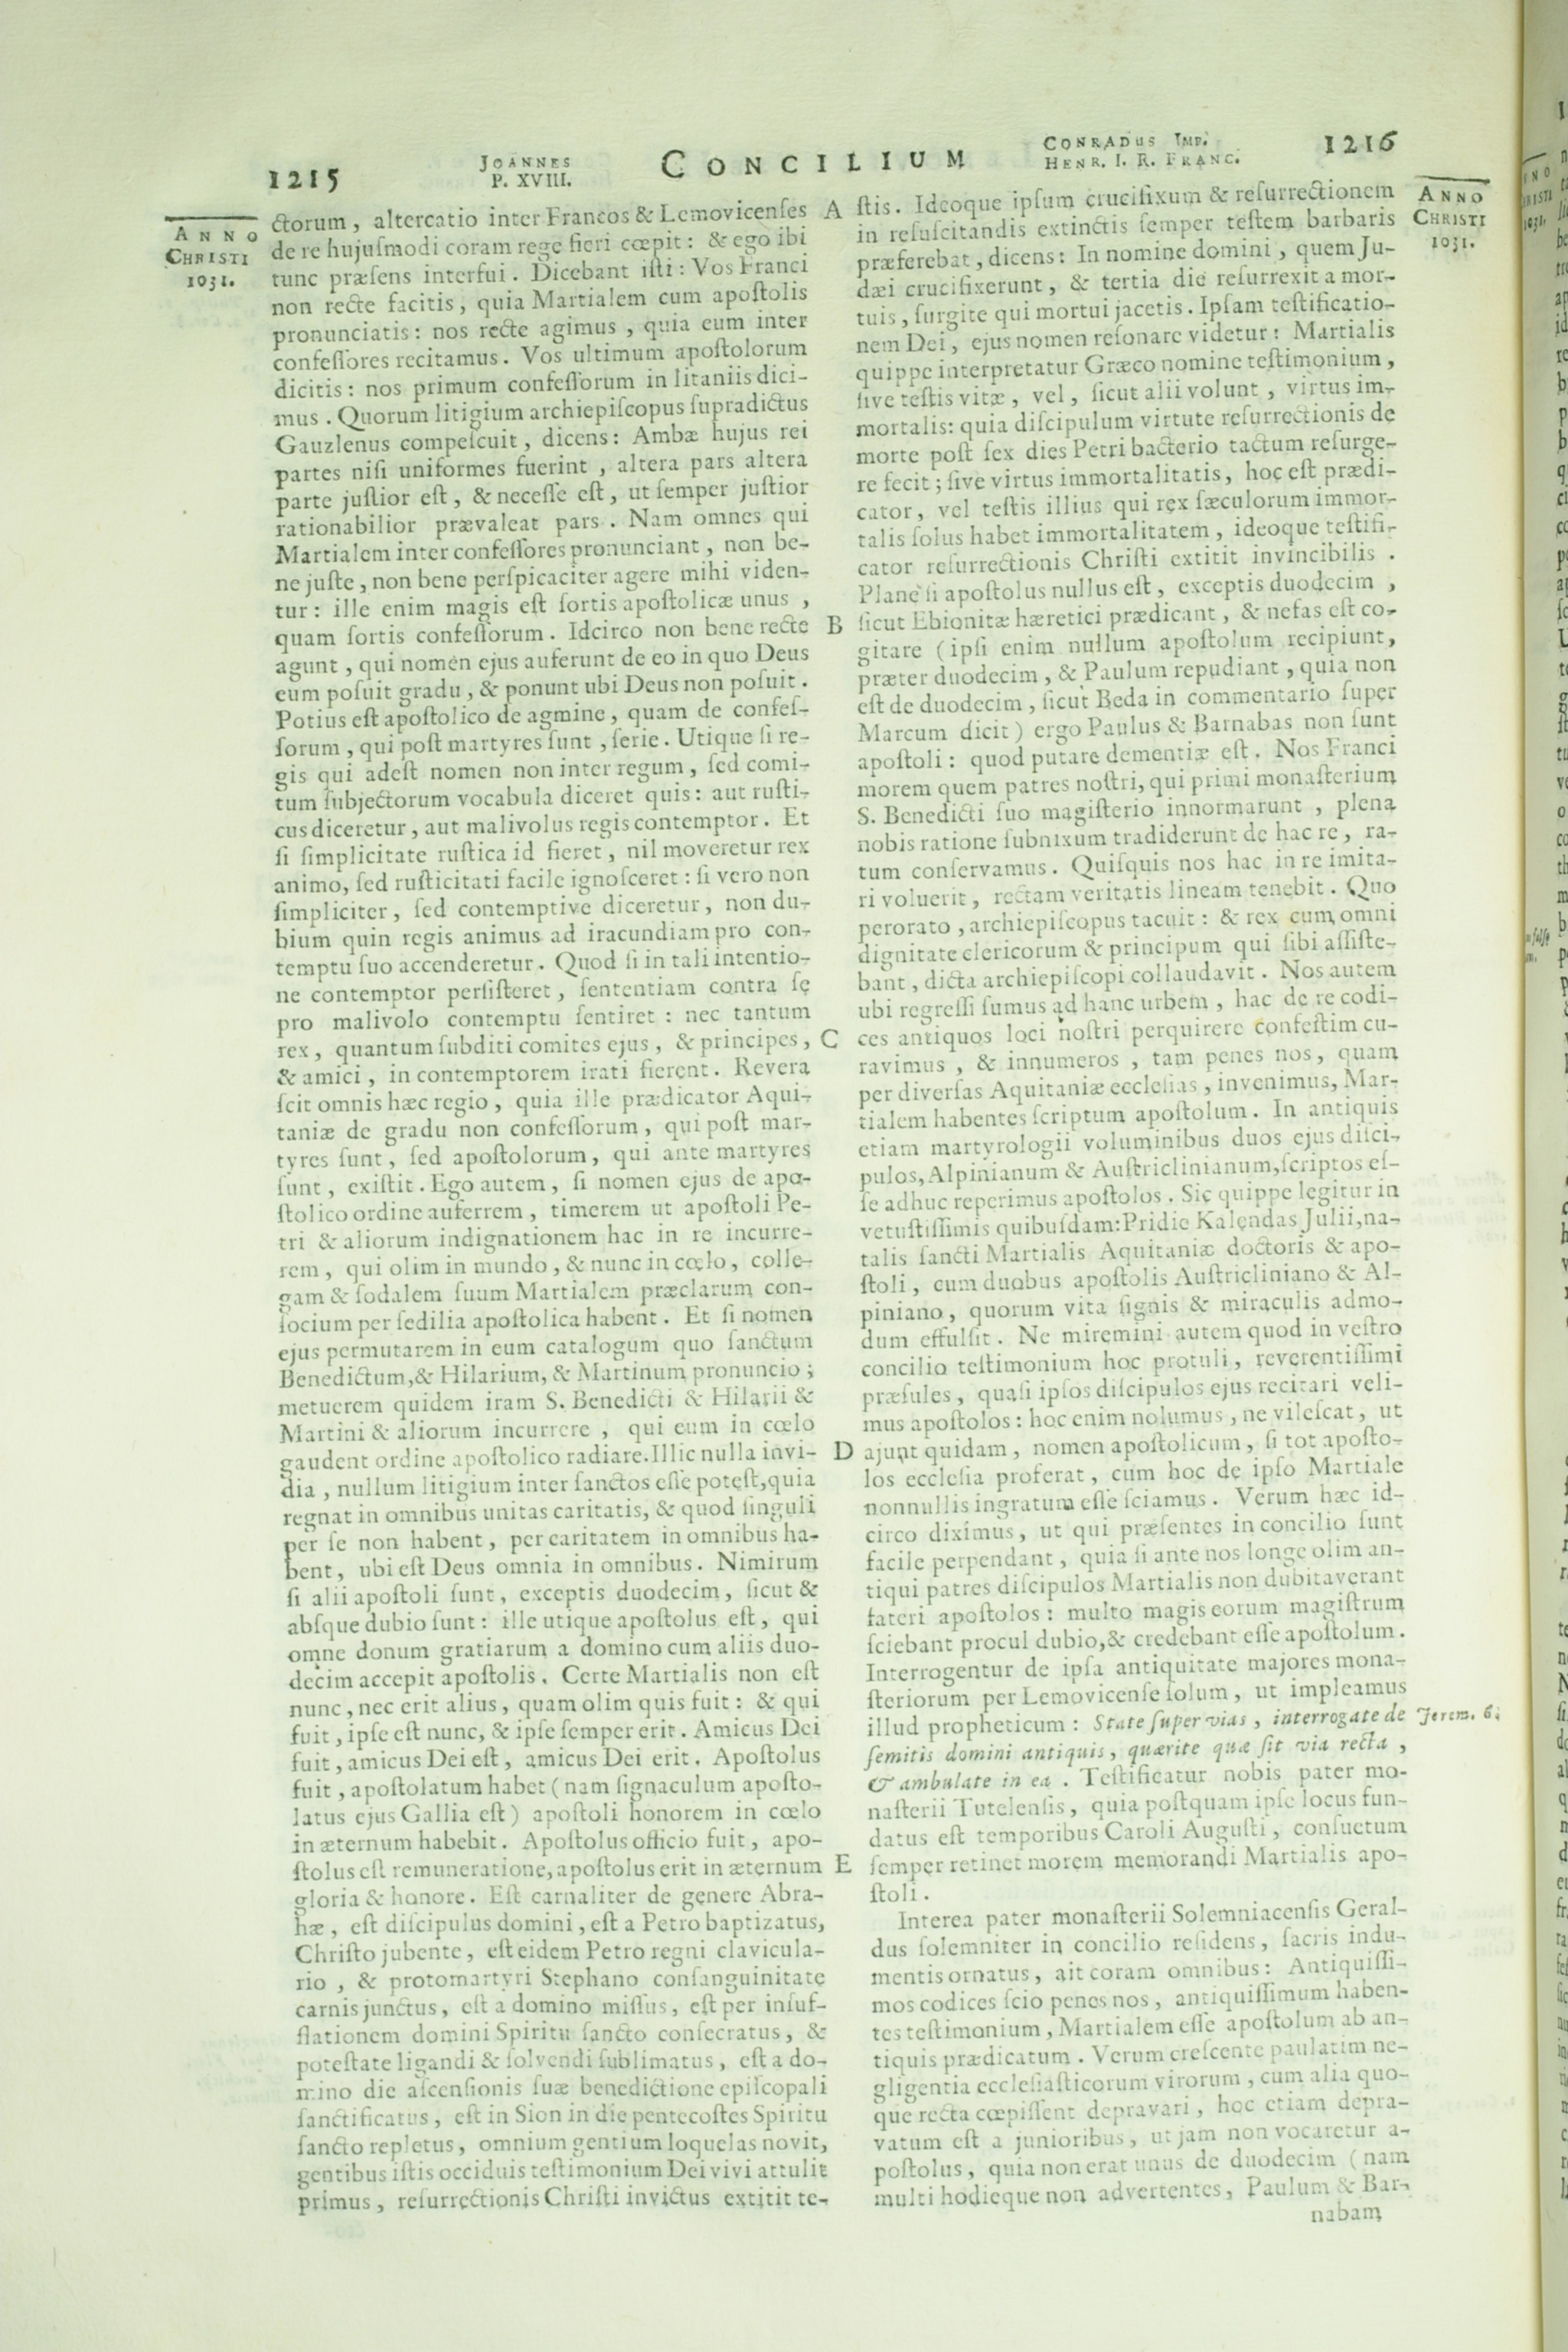 1215
JOANNES
P. XVIII.
CONCILIUM
CONRADUS IMP.
HENR. I. R. FRANC.
1216
ANNO
CHRISTI
1031.
ctorum, altercatio inter Francos & Lemovicenſes
de re hujuſmodi coram rege fieri cœpit: & ego ibi
tunc præſens interfui. Dicebant iſti: Vos Franci
non recte facitis, quia Martialem cum apoſtolis
pronunciatis: nos recte agimus, quia eum inter
confeſſores recitamus. Vos ultimum apoſtolorum
dicitis: nos primum confeſſorum in litaniis dici-
mus. Quorum litigium archiepiſcopus ſupradictus
Gauzlenus compeſcuit, dicens: Ambæ hujus rei
partes niſi uniformes fuerint, altera pars altera
parte juſtior eſt, & neceſſe eſt, ut ſemper juſtior
rationabilior prævaleat pars. Nam omnes qui
Martialem inter confeſſores pronunciant, non be-
ne juſte, non bene perſpicaciter agere mihi viden-
tur: ille enim magis eſt ſortis apoſtolicæ unus,
quam ſortis confeſſorum. Idcirco non bene recte
agunt, qui nomen ejus auferunt de eo in quo Deus
eum poſuit gradu, & ponunt ubi Deus non poſuit.
Potius eſt apoſtolico de agmine, quam de confeſ-
ſorum, qui poſt martyres ſunt, ſerie. Utique ſi re-
gis qui adeſt nomen non inter regum, ſed comi-
tum ſubjectorum vocabula diceret quis: aut ruſti-
cus diceretur, aut malivolus regis contemptor. Et
ſi ſimplicitate ruſtica id fieret, nil moveretur rex
animo, ſed ruſticitati facile ignoſceret: ſi vero non
ſimpliciter, ſed contemptive diceretur, non du-
bium quin regis animus ad iracundiam pro con-
temptu ſuo accenderetur. Quod ſi in tali intentio-
ne contemptor perſiſteret, ſententiam contra ſe
pro malivolo contemptu ſentiret: nec tantum
rex, quantum ſubditi comites ejus, & principes,
& amici, in contemptorem irati fierent. Revera
ſcit omnis hæc regio, quia ille prædicator Aqui-
taniæ de gradu non confeſſorum, qui poſt mar-
tyres ſunt, ſed apoſtolorum, qui ante martyres
ſunt, exiſtit. Ego autem, ſi nomen ejus de apo-
ſtolico ordine auferrem, timerem ut apoſtoli Pe-
tri & aliorum indignationem hac in re incurre-
rem, qui olim in mundo, & nunc in cœlo, colle-
gam & ſodalem ſuum Martialem præclarum con-
ſocium per ſedilia apoſtolica habent. Et ſi nomen
ejus permutarem in eum catalogum quo ſanctum
Benedictum, & Hilarium, & Martinum pronuncio;
metuerem quidem iram S. Benedicti & Hilarii &
Martini & aliorum incurrere, qui eum in cœlo
gaudent ordine apoſtolico radiare. Illic nulla invi-
dia, nullum litigium inter ſanctos eſſe poteſt, quia
regnat in omnibus unitas caritatis, & quod ſinguli
per ſe non habent, per caritatem in omnibus ha-
bent, ubi eſt Deus omnia in omnibus. Nimirum
ſi alii apoſtoli ſunt, exceptis duodecim, ſicut &
abſque dubio ſunt: ille utique apoſtolus eſt, qui
omne donum gratiarum a domino cum aliis duo-
decim accepit apoſtolis. Certe Martialis non eſt
nunc, nec erit alius, quam olim quis fuit: & qui
fuit, ipſe eſt nunc, & ipſe ſemper erit. Amicus Dei
fuit, amicus Dei eſt, amicus Dei erit. Apoſtolus
fuit, apoſtolatum habet (nam ſignaculum apoſto-
latus ejus Gallia eſt) apoſtoli honorem in cœlo
in æternum habebit. Apoſtolus officio fuit, apo-
ſtolus eſt remuneratione, apoſtolus erit in æternum
gloria & honore. Eſt carnaliter de genere Abra-
hæ, eſt diſcipulus domini, eſt a Petro baptizatus,
Chriſto jubente, eſt eidem Petro regni clavicula-
rio, & protomartyri Stephano conſanguinitate
carnis junctus, eſt a domino miſſus, eſt per inſuf-
flationem domini Spiritu ſancto conſecratus, &
poteſtate ligandi & ſolvendi ſublimatus, eſt a do-
mino die aſcenſionis ſuæ benedictione epiſcopali
ſanctificatus, eſt in Sion in die pentecoſtes Spiritu
ſancto repletus, omnium gentium loquelas novit,
gentibus iſtis occiduis teſtimonium Dei vivi attulit
primus, reſurrectionis Chriſti invictus extitit te-
A
B
C
D
E
ſtis. Ideoque ipſum crucifixum & reſurrectionem
in reſuſcitandis extinctis ſemper teſtem barbaris
præferebat, dicens: In nomine domini, quem Ju-
dæi crucifixerunt, & tertia die reſurrexit a mor-
tuis, ſurgite qui mortui jacetis. Ipſam teſtificatio-
nem Dei, ejus nomen reſonare videtur: Martialis
quippe interpretatur Græco nomine teſtimonium,
ſive teſtis vitæ, vel, ſicut alii volunt, virtus im-
mortalis: quia diſcipulum virtute reſurrectionis de
morte poſt ſex dies Petri bacterio tactum reſurge-
re fecit; ſive virtus immortalitatis, hoc eſt prædi-
cator, vel teſtis illius qui rex ſæculorum immor-
talis ſolus habet immortalitatem, ideoque teſtifi-
cator reſurrectionis Chriſti extitit invincibilis.
Plane ſi apoſtolus nullus eſt, exceptis duodecim,
ſicut Ebionitæ hæretici prædicant, & nefas eſt co-
gitare (ipſi enim nullum apoſtolum recipiunt,
præter duodecim, & Paulum repudiant, quia non
eſt de duodecim, ſicut Beda in commentario ſuper
Marcum dicit) ergo Paulus & Barnabas non ſunt
apoſtoli: quod putare dementiæ eſt. Nos Franci
morem quem patres noſtri, qui primi monaſterium
S. Benedicti ſuo magiſterio innormarunt, plena
nobis ratione ſubnixum tradiderunt de hac re, ra-
tum conſervamus. Quiſquis nos hac in re imita-
ri voluerit, rectam veritatis lineam tenebit. Quo
perorato, archiepiſcopus tacuit: & rex cum omni
dignitate clericorum & principum qui ſibi aſſiſte-
bant, dicta archiepiſcopi collaudavit. Nos autem
ubi regreſſi ſumus ad hanc urbem, hac de re codi-
ces antiquos loci noſtri perquirere confeſtim cu-
ravimus, & innumeros, tam penes nos, quam
per diverſas Aquitaniæ eccleſias, invenimus, Mar-
tialem habentes ſcriptum apoſtolum. In antiquis
etiam martyrologii voluminibus duos ejus diſci-
pulos, Alpinianum & Auſtriclinianum, ſcriptos eſ-
ſe adhuc reperimus apoſtolos. Sic quippe legitur in
vetuſtiſſimis quibuſdam: Pridie Kalendas Julii, na-
talis ſancti Martialis Aquitaniæ doctoris & apo-
ſtoli, cum duobus apoſtolis Auſtricliniano & Al-
piniano, quorum vita ſignis & miraculis admo-
dum effulſit. Ne miremini autem quod in veſtro
concilio teſtimonium hoc protuli, reverentiſſimi
præſules, quaſi ipſos diſcipulos ejus recitari veli-
mus apoſtolos: hoc enim nolumus, ne vileſcat, ut
ajunt quidam, nomen apoſtolicum, ſi tot apoſto-
los eccleſia proferat, cum hoc de ipſo Martiale
nonnullis ingratum eſſe ſciamus. Verum hæc id-
circo diximus, ut qui præſentes in concilio ſunt
facile perpendant, quia ſi ante nos longe olim an-
tiqui patres diſcipulos Martialis non dubitaverant
fateri apoſtolos: multo magis eorum magiſtrum
ſciebant procul dubio, & credebant eſſe apoſtolum.
Interrogentur de ipſa antiquitate majores mona-
ſteriorum per Lemovicenſe ſolum, ut impleamus
illud propheticum: State ſuper vias, interrogate de
ſemitis domini antiquis, quærite quæ ſit via recta,
& ambulate in ea. Teſtificatur nobis pater mo-
naſterii Tutelenſis, quia poſtquam ipſe locus fun-
datus eſt temporibus Caroli Auguſti, conſuetum
ſemper retinet morem memorandi Martialis apo-
ſtoli.
Interea pater monaſterii Solemniacenſis Geral-
dus ſolemniter in concilio reſidens, ſacris indu-
mentis ornatus, ait coram omnibus: Antiquiſſi-
mos codices ſcio penes nos, antiquiſſimum haben-
tes teſtimonium, Martialem eſſe apoſtolum ab an-
tiquis prædicatum. Verum creſcente paulatim ne-
gligentia eccleſiaſticorum virorum, cum alia quo-
que recta cœpiſſent depravari, hoc etiam depra-
vatum eſt a junioribus, ut jam non vocaretur a-
poſtolus, quia non erat unus de duodecim (nam
multi hodieque non advertentes, Paulum & Bar-
nabam
ANNO
CHRISTI
1031.
Jerem. 6.